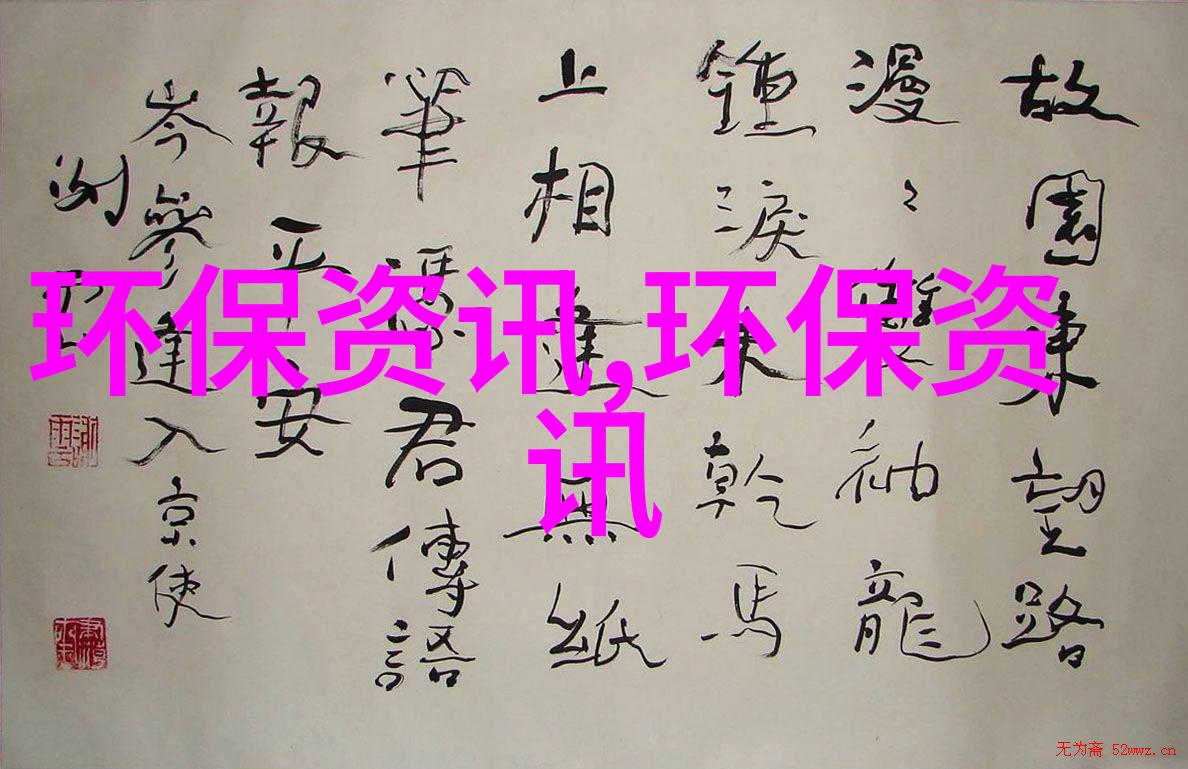 环保资讯,环保资
讯
故園東望路
漫〻雙袖龍
鍾淚未乾馬
上相逢無紙
筆憑君傳語
報平安
岑參逢入京使
无为斋 52wwz.cn